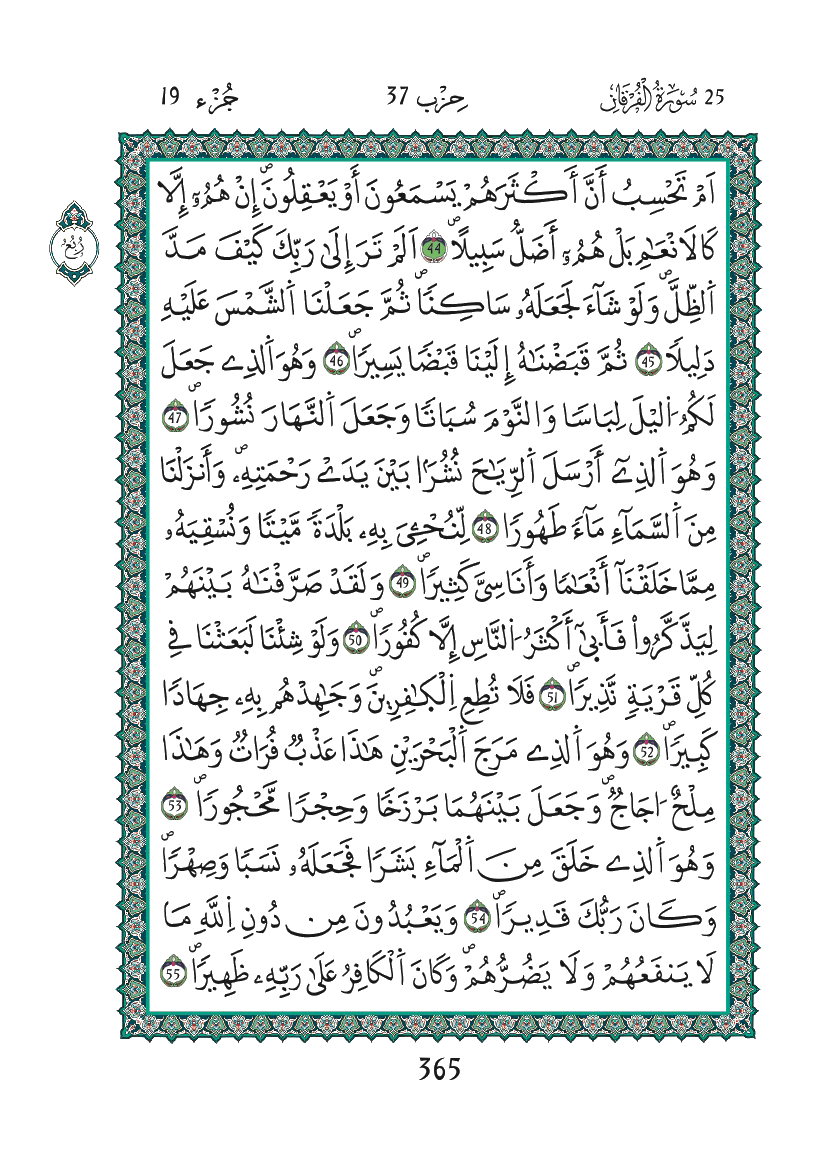 25 سُورَةُ الْفُرْقَانِ
حِزْب 37
جُزْء 19
اَمْ تَحْسِبُ أَنَّ أَكْثَرَهُمْ يَسْمَعُونَ أَوْ يَعْقِلُونَۖ إِنْ هُمُۥٓ إِلَّا
كَالَانْعَٰمِ بَلْ هُمُۥٓ أَضَلُّ سَبِيلًاۖ 44 اَلَمْ تَرَ إِلَىٰ رَبِّكَ كَيْفَ مَدَّ
اَ۬لظِّلَّۖ وَلَوْ شَآءَ لَجَعَلَهُۥ سَاكِنٗاۖ ثُمَّ جَعَلْنَا اَ۬لشَّمْسَ عَلَيْهِ
دَلِيلٗا 45 ثُمَّ قَبَضْنَٰهُ إِلَيْنَا قَبْضٗا يَسِيرٗاۖ 46 وَهُوَ اَ۬لذِے جَعَلَ
لَكُمُ اُ۬ليْلَ لِبَاسٗا وَالنَّوْمَ سُبَاتٗا وَجَعَلَ اَ۬لنَّهَارَ نُشُورٗاۖ 47
وَهُوَ اَ۬لذِےٓ أَرْسَلَ اَ۬لرِّيَٰحَ نُشُرَۢا بَيْنَ يَدَےْ رَحْمَتِهِۦۖ وَأَنزَلْنَا
مِنَ اَ۬لسَّمَآءِ مَآءٗ طَهُورٗا 48 لِّنُحْـِۧيَ بِهِۦ بَلْدَةٗ مَّيْتٗا وَنُسْقِيَهُۥ
مِمَّا خَلَقْنَآ أَنْعَٰمٗا وَأَنَاسِيَّ كَثِيرٗاۖ 49 وَلَقَدْ صَرَّفْنَٰهُ بَيْنَهُمْ
لِيَذَّكَّرُواْ فَأَبَىٰٓ أَكْثَرُ اُ۬لنَّاسِ إِلَّا كُفُورٗاۖ 50 وَلَوْ شِئْنَا لَبَعَثْنَا فِے
كُلِّ قَرْيَةٖ نَّذِيرٗاۖ 51 فَلَا تُطِعِ اِ۬لْكٰ۪فِرِينَۖ وَجَٰهِدْهُم بِهِۦ جِهَادٗا
كَبِيرٗاۖ 52 وَهُوَ اَ۬لذِے مَرَجَ اَ۬لْبَحْرَيْنِ هَٰذَا عَذْبٞ فُرَاتٞ وَهَٰذَا
مِلْحٌ اُجَاجٞۖ وَجَعَلَ بَيْنَهُمَا بَرْزَخٗا وَحِجْرٗا مَّحْجُورٗاۖ 53
وَهُوَ اَ۬لذِے خَلَقَ مِنَ اَ۬لْمَآءِ بَشَرٗا فَجَعَلَهُۥ نَسَبٗا وَصِهْرٗاۖ
وَكَانَ رَبُّكَ قَدِيرٗاۖ 54 وَيَعْبُدُونَ مِن دُونِ اِ۬للَّهِ مَا
لَا يَنفَعُهُمْ وَلَا يَضُرُّهُمْۖ وَكَانَ اَ۬لْكَافِرُ عَلَىٰ رَبِّهِۦ ظَهِيرٗاۖ 55
رُبُع
365